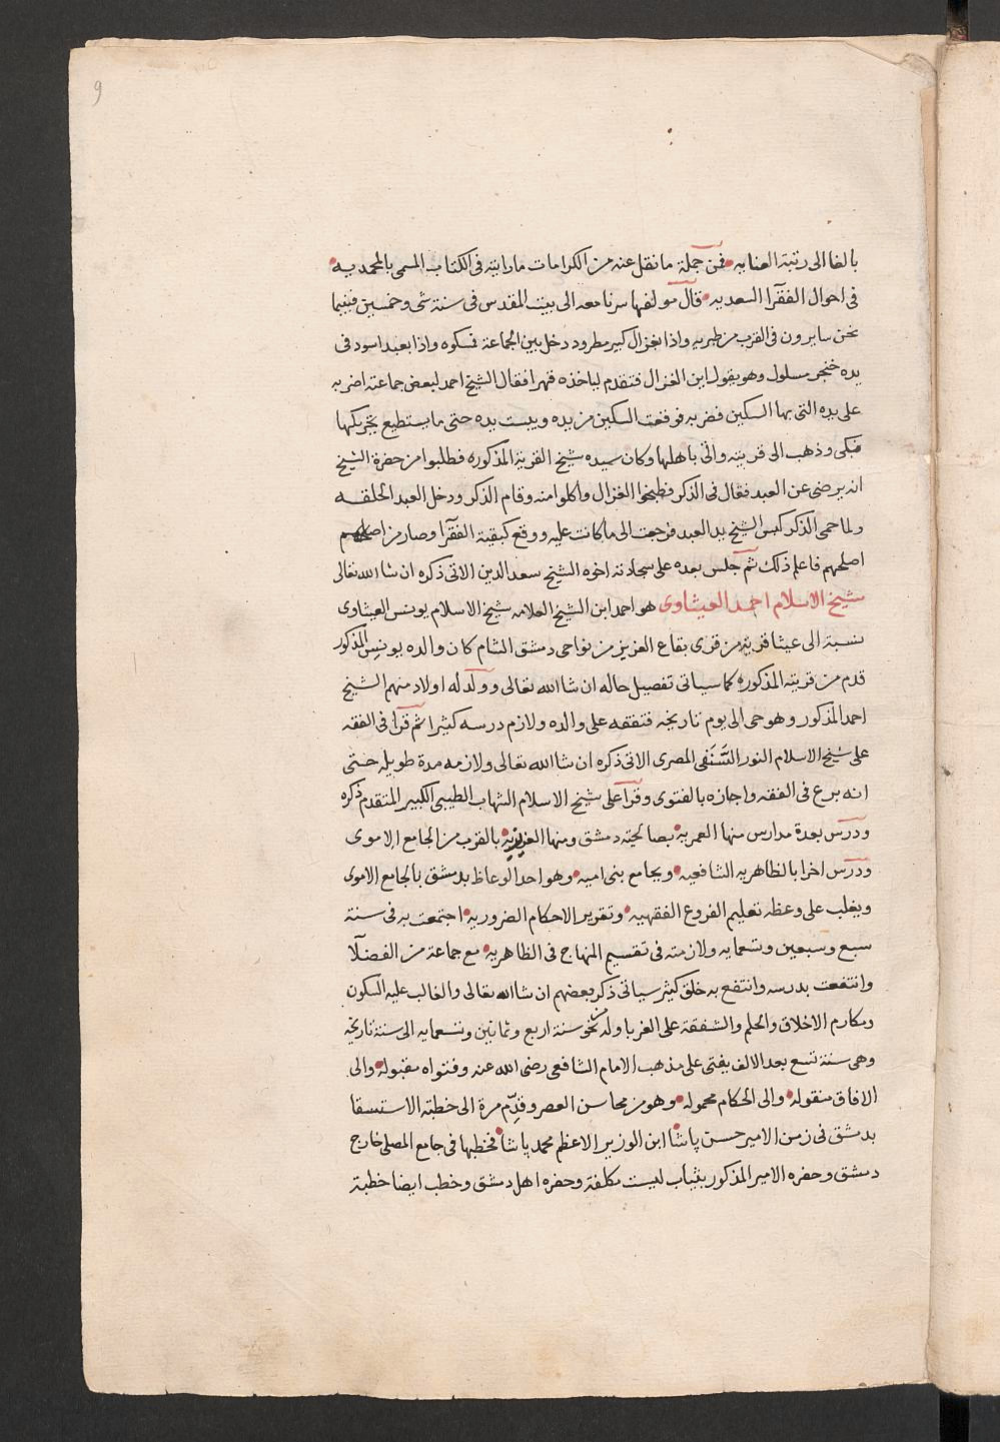 9
بالغا الى رتبة العنايه فمن جملة ما نقل عنه من الكرامات ما رايته فى الكتاب المسمى بالمحمديه
فى احوال الفقرا السعديه قال مولفها سرنا معه الى بيت المقدس فى سنة ثمان وخمسين فبينما
نحن سايرون فى القرب من طبريه واذا بغزال كبير مطرود دخل بين الجماعة فمسكوه واذا بعبد اسود فى
يده خنجر مسلول وهو يقول اين الغزال فتقدم لياخذه قهرا فقال الشيخ احمد لبعض جماعته اضربه
على يده التى بها السكين فضربه فوقعت السكين من يده ويبست يده حتى ما يستطيع تحريكها
فبكى وذهب الى قريته واتى باهلها وكان سيده شيخ القرية المذكوره فطلبوا من حضرة الشيخ
انه يرضى عن العبد فقال فى الذكر فطبخوا الغزال واكلوا منه وقام الذكر ودخل العبد الحلقه
ولما حمى الذكر كبس الشيخ يد العبد فرجعت الى ما كانت عليه ووقع كبقية الفقرا وصار من
اصلحهم فاعلم ذلك ثم جلس بعده على سجادته اخوه الشيخ سعد الدين الاتى ذكره ان شا الله تعالى
شيخ الاسلام احمد العيثاوى هو احمد ابن الشيخ العلامه شيخ الاسلام يونس العيثاوى
نسبة الى عيثا قرية من قرى بقاع العزيز من نواحى دمشق الشام كان والده يونس المذكور
قدم من قريته المذكوره كما سياتى تفصيل حاله ان شا الله تعالى وولد له اولاد منهم الشيخ
احمد المذكور وهو حى الى يوم تاريخه فتفقه على والده ولازم درسه كثيرا ثم قرا فى الفقه
على شيخ الاسلام النور السَّنَفى المصرى الاتى ذكره ان شا الله تعالى ولازمه مدة طويله حتى
انه برع فى الفقه واجازه بالفتوى وقرا على شيخ الاسلام الشهاب الطيبى الكبير المتقدم ذكره
ودرس بعدة مدارس منها العمريه بصالحية دمشق ومنها العزيزيه بالقرب من الجامع الاموى
ودرس اخرا بالظاهريه الشافعيه وبجامع بنى اميه وهو احد الوعاظ بدمشق بالجامع الاموى
ويغلب على وعظه تعليم الفروع الفقهيه وتقرير الاحكام الضروريه اجتمعت به فى سنة
سبع وسبعين وتسعمايه ولازمته فى تقسيم المنهاج فى الظاهريه مع جماعة من الفضلا
وانتفعت بدرسه وانتفع به خلق كثير سياتى ذكر بعضهم ان شا الله تعالى والغالب عليه السكون
ومكارم الاخلاق والحلم والشفقة على الغربا وله نحو سنة اربع وثمانين وتسعمايه الى سنة تاريخه
وهى سنة تسع بعد الالف يفتى على مذهب الامام الشافعى رضى الله عنه وفتواه مقبولة والى
الافاق منقوله والى الحكام محموله وهو من محاسن العصر وقدّم مرة الى خطبة الاستسقا
بدمشق فى زمن الامير حسن پاشا ابن الوزير الاعظم محمد پاشا فخطبها فى جامع المصلى خارج
دمشق وحضره الامير المذكور بثياب ليست مكلفة وحضره اهل دمشق وخطب ايضا خطبة